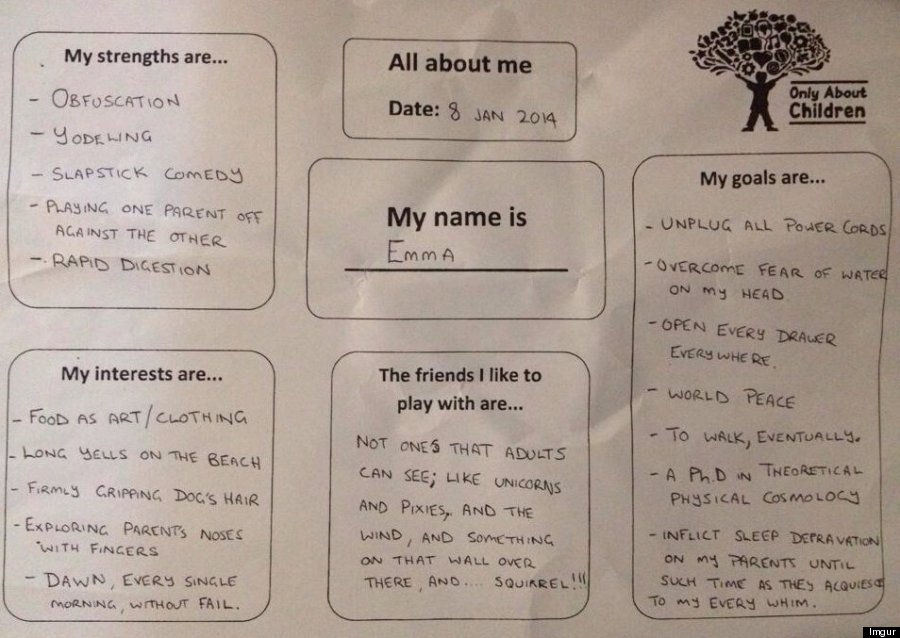 My strengths are...
- OBFUSCATION
- YODELING
- SLAPSTICK COMEDY
- PLAYING ONE PARENT OFF
AGAINST THE OTHER
- RAPID DIGESTION
All about me
Date: 8 JAN 2014
Only About
Children
My name is
EMMA
My goals are...
- UNPLUG ALL POWER CORDS
- OVERCOME FEAR OF WATER
ON MY HEAD
- OPEN EVERY DRAWER
EVERYWHERE.
- WORLD PEACE
- TO WALK, EVENTUALLY.
- A Ph.D IN THEORETICAL
PHYSICAL COSMOLOGY
- INFLICT SLEEP DEPRAVATION
ON MY PARENTS UNTIL
SUCH TIME AS THEY ACQUIESCE
TO MY EVERY WHIM.
My interests are...
- FOOD AS ART/CLOTHING
- LONG YELLS ON THE BEACH
- FIRMLY GRIPPING DOG'S HAIR
- EXPLORING PARENTS NOSES
WITH FINGERS
- DAWN, EVERY SINGLE
MORNING, WITHOUT FAIL.
The friends I like to
play with are...
NOT ONES THAT ADULTS
CAN SEE; LIKE UNICORNS
AND PIXIES, AND THE
WIND, AND SOMETHING
ON THAT WALL OVER
THERE, AND.... SQUIRREL!!!
Imgur